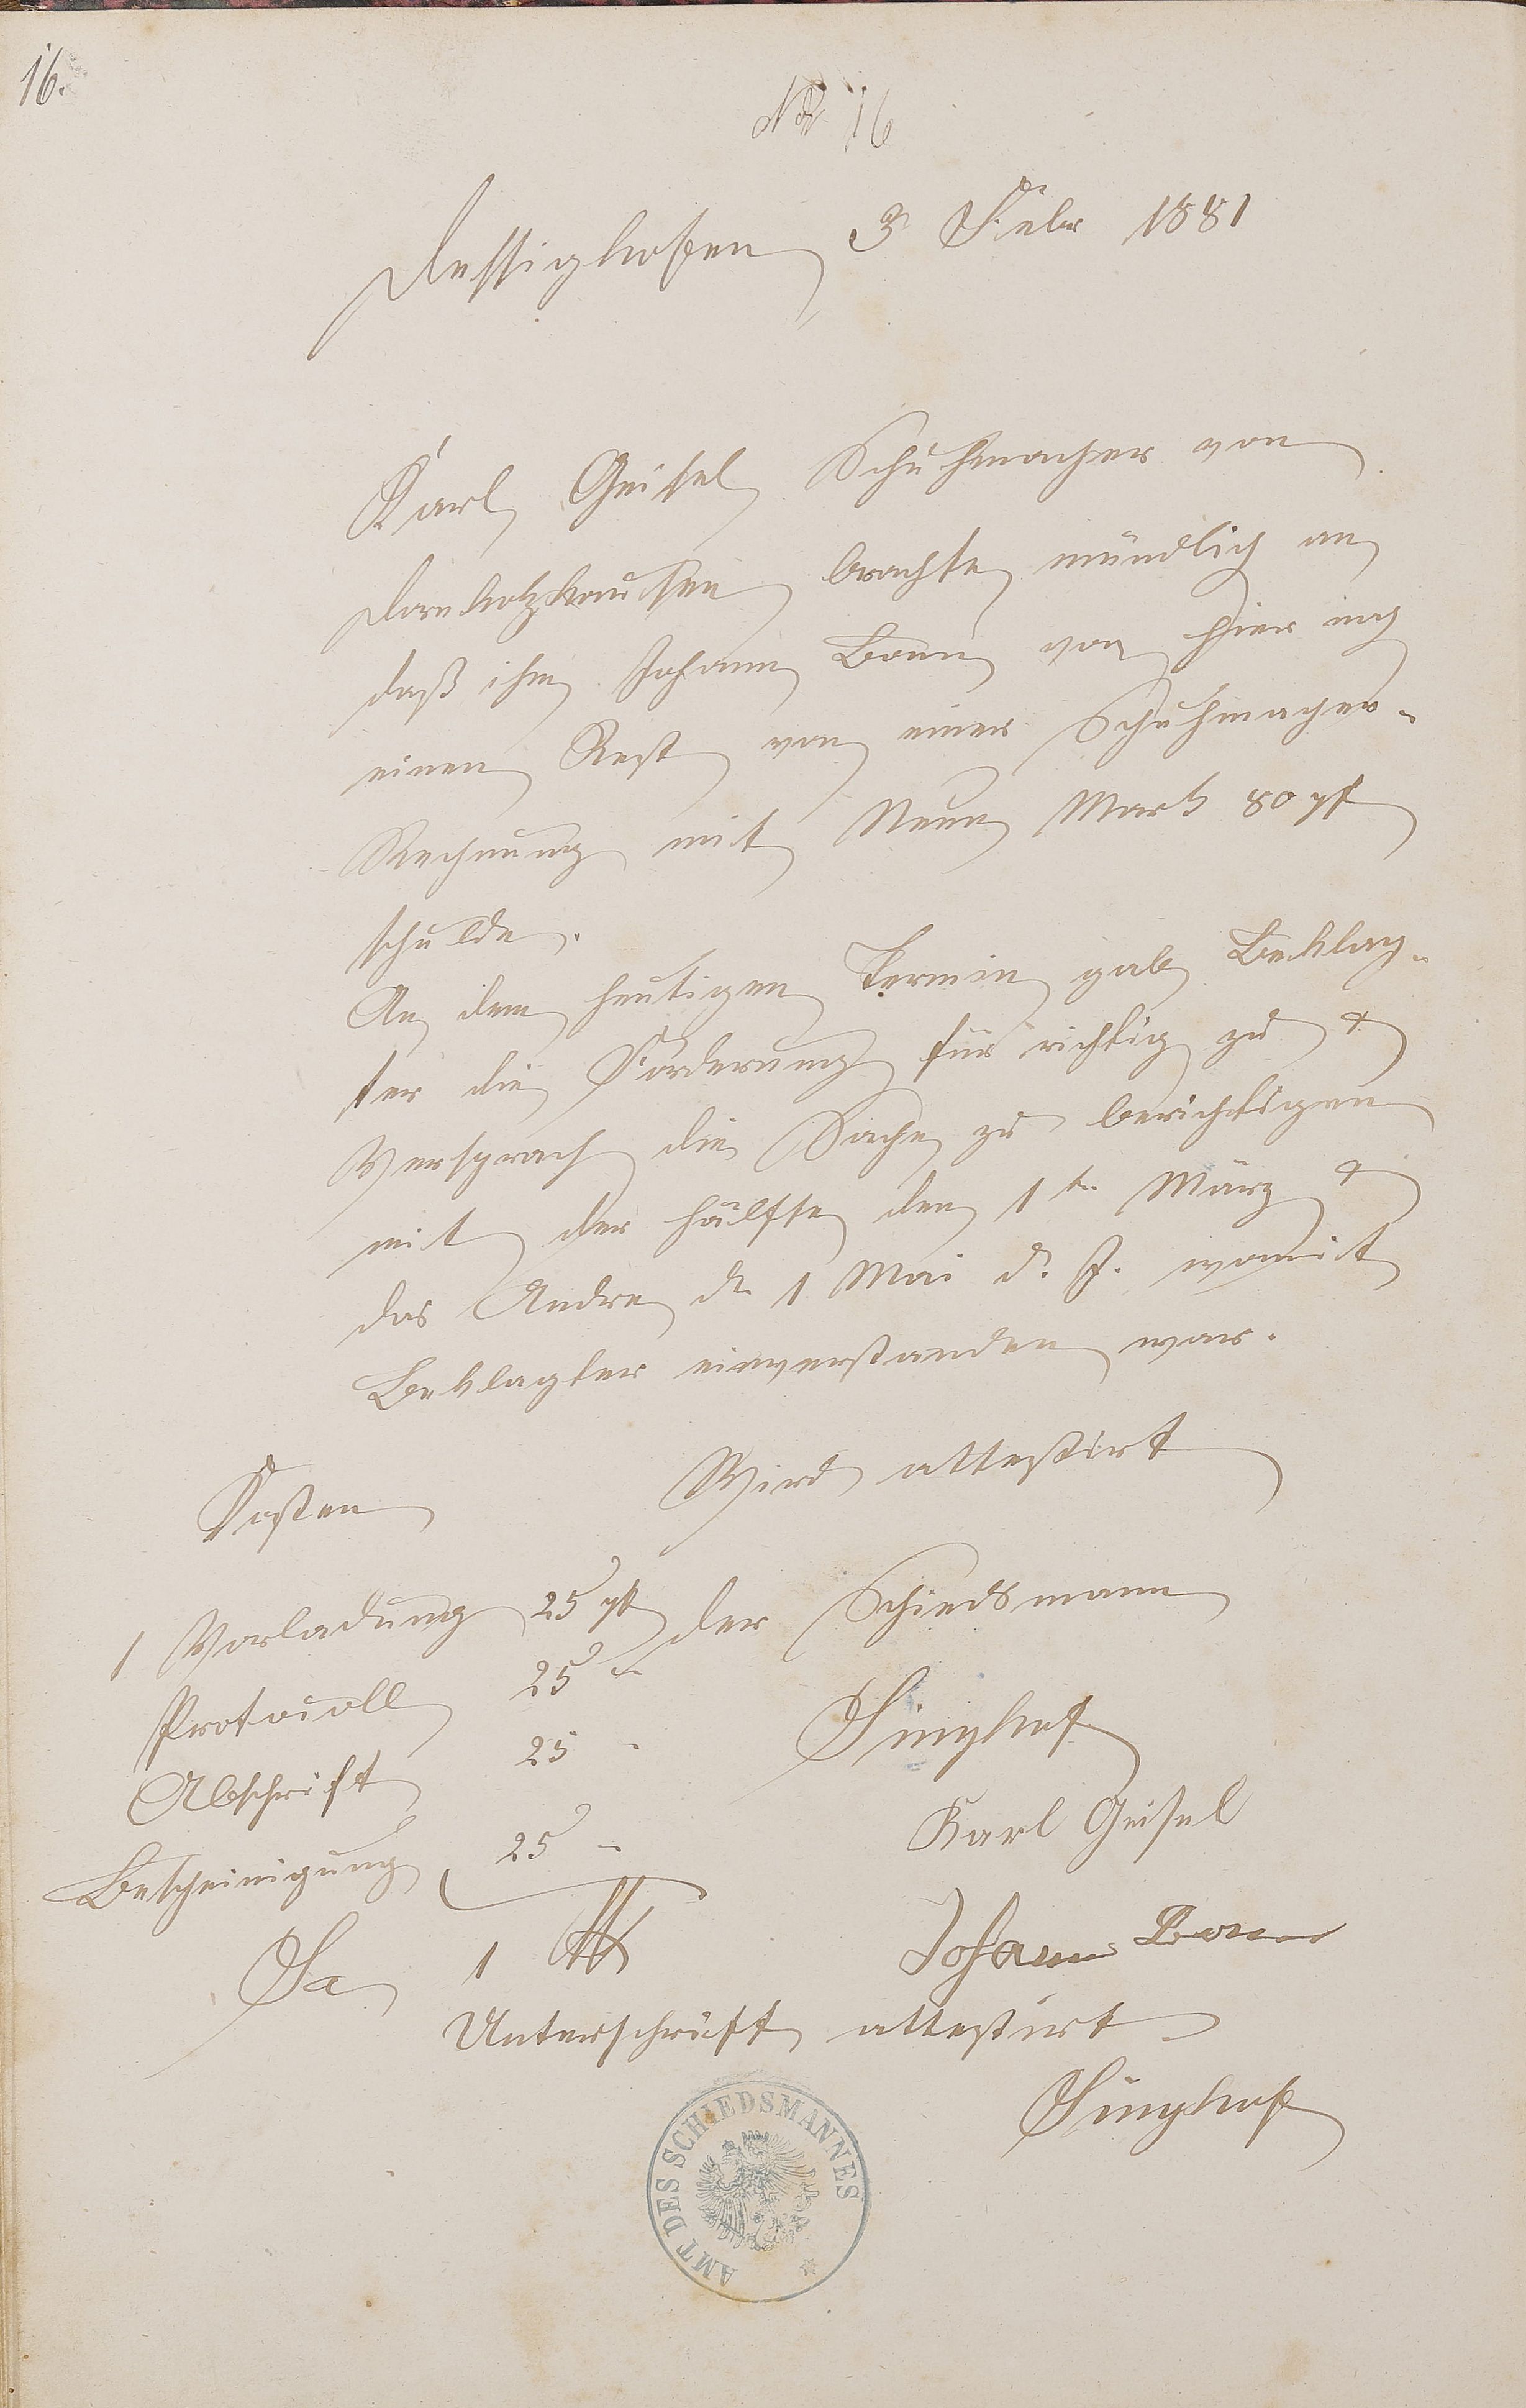 16.
No 16
Dessighofen 3 Febr 1881
Karl Geisel Schuhmacher von
Dornholzhausen brachte mündlich an
daß ihm Johann Bonn von hier noch
einen Rest von einer Schuhmacher-
Rechnung mit Neun Mark 80 pf
schulde.
An dem heutigen Termin gab Beklag-
ter die Forderung für richtig zu &
Versprach die Sache zu berichtigen
mit der hälfte den 1ten März &
das Andre d. 1 Mai d. J. womit
Beklagter einverstanden war.
Wird attestirt
Kosten
1 Vorladung 25 pf der Schiedsmann
Protocoll 25 "
Singhof
Abschrift 25 "
Karl Geisel
Bescheinigung 25 "
Johann Bonn
Sa 1 M
Unterschrift attestirt
Singhof
AMT DES SCHIEDSMANNES